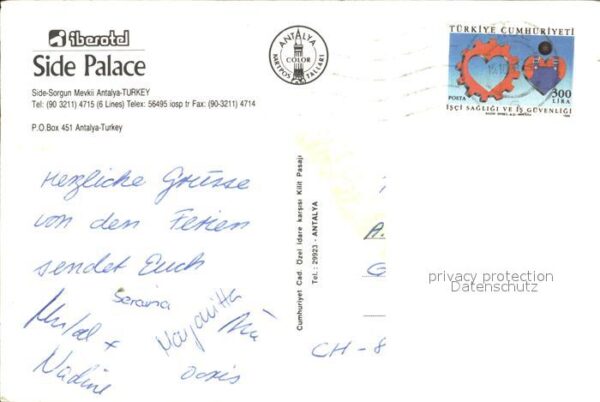 iberotel
Side Palace
Side-Sorgun Mevkii Antalya-TURKEY
Tel: (90 3211) 4715 (6 Lines) Telex: 56495 iosp tr Fax: (90-3211) 4714
P.O.Box 451 Antalya-Turkey
ANTALYA
COLOR
KARTPOSTALLARI
TÜRKİYE CUMHURİYETİ
POSTA
300
LİRA
İŞÇİ SAĞLIĞI VE İŞ GÜVENLİĞİ
Herzliche Grüsse
von den Ferien
sendet Euch
Seraina
Margaritha
Nadine
Doris
Cumhuriyet Cad. Özel İdare karşısı Kilit Pasajı
Tel.: 29923 - ANTALYA
A.
G
CH - 8
privacy protection
Datenschutz